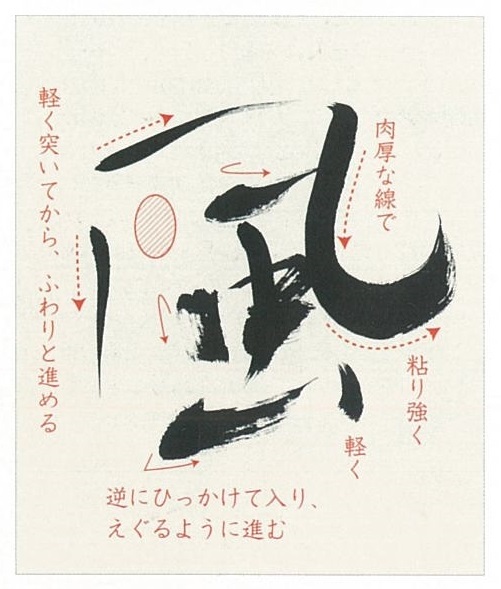 風
肉厚な線で
粘り強く
軽く
軽く突いてから、ふわりと進める
逆にひっかけて入り、
えぐるように進む